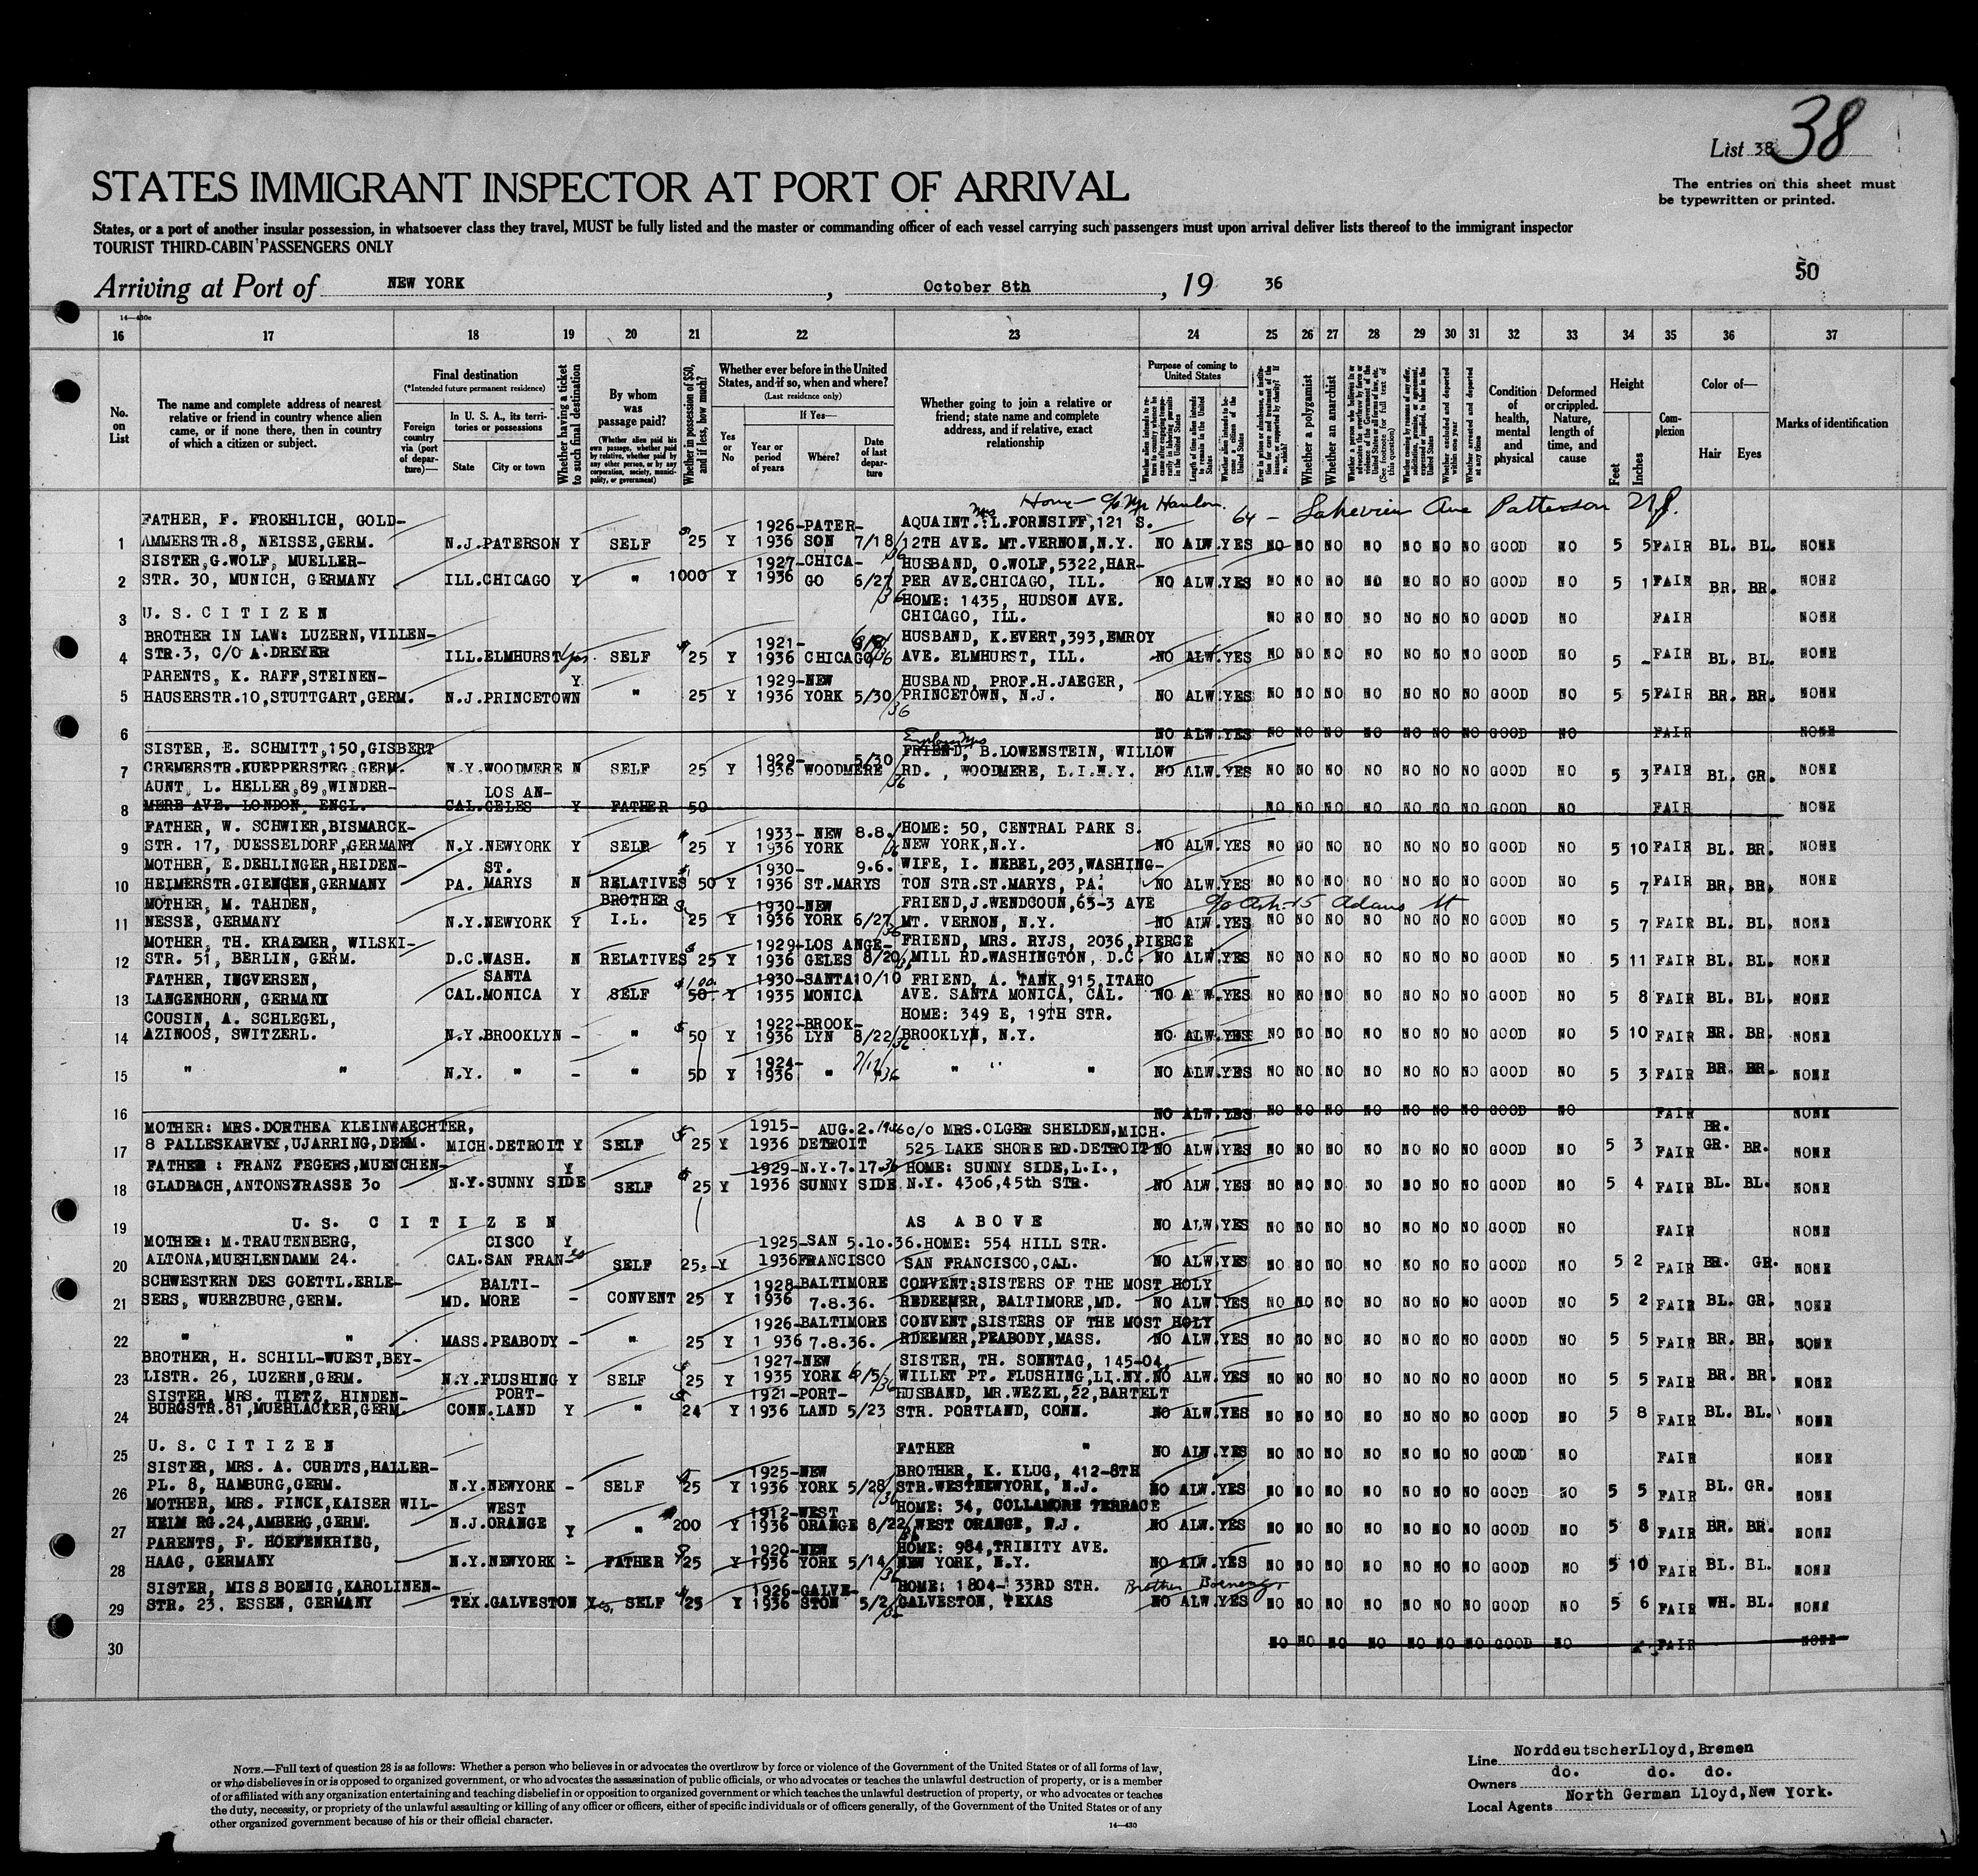 38
List 38
The entries on this sheet must
be typewritten or printed.
STATES IMMIGRANT INSPECTOR AT PORT OF ARRIVAL
States, or a port of another insular possession, in whatsoever class they travel, MUST be fully listed and the master or commanding officer of each vessel carrying such passengers must upon arrival deliver lists thereof to the immigrant inspector
TOURIST THIRD-CABIN PASSENGERS ONLY
50
Arriving at Port of NEW YORK, October 8th, 19 36
14—430c
16 17 18 19 20 21 22 23 24 25 26 27 28 29 30 31 32 33 34 35 36 37
No. on List
The name and complete address of nearest relative or friend in country whence alien came, or if none there, then in country of which a citizen or subject.
Final destination
(*Intended future permanent residence)
Foreign country via (port of departure)—
In U. S. A., its territories or possessions
State
City or town
Whether having a ticket to such final destination
By whom was passage paid?
(Whether alien paid his own passage, whether paid by relative, whether paid by any other person, or by any corporation, society, municipality, or government)
Whether in possession of $50, and if less, how much?
Whether ever before in the United States, and if so, when and where?
(Last residence only)
If Yes—
Yes or No
Year or period of years
Where?
Date of last departure
Whether going to join a relative or friend; state name and complete address, and if relative, exact relationship
Purpose of coming to United States
Length of time alien intends to remain in the United States
Whether alien intends to become a citizen of the United States
Whether a polygamist
Whether an anarchist
(See footnote for full text of this question)
Whether excluded and deported within one year
Whether arrested and deported at any time
Condition of health, mental and physical
Deformed or crippled. Nature, length of time, and cause
Height
Feet
Inches
Complexion
Color of—
Hair
Eyes
Marks of identification
Home c/o Mr Hanlon. 64 - Lakeview Ave Patterson N.J.
FATHER, F. FROEHLICH, GOLD- 1926-PATER- Mrs AQUAINT.:L.FORNSIFF,121 S.
1 AMMERSTR.8, NEISSE,GERM. N.J.PATERSON Y SELF 25 Y 1936 SON 7/18/36 12TH AVE. MT.VERNON,N.Y. NO ALW.YES NO NO NO NO NO NO NO GOOD NO 5 5 FAIR BL. BL. NONE
SISTER,G.WOLF, MUELLER- 1927-CHICA- HUSBAND, O.WOLF,5322,HAR-
2 STR. 30, MUNICH, GERMANY ILL.CHICAGO Y " 1000 Y 1936 GO 6/27/36 PER AVE.CHICAGO, ILL. NO ALW.YES NO NO NO NO NO NO NO GOOD NO 5 1 FAIR BR. BR. NONE
HOME: 1435, HUDSON AVE.
3 U. S. C I T I Z E N CHICAGO, ILL. NO NO NO NO NO NO NO GOOD NO FAIR NONE
BROTHER IN LAW: LUZERN,VILLEN- 1921- HUSBAND, K.EVERT,393,EMROY
4 STR.3, C/O A.DREYER ILL.ELMHURST Yes SELF 25 Y 1936 CHICAGO AVE. ELMHURST, ILL. NO ALW.YES NO NO NO NO NO NO NO GOOD NO 5 - FAIR BL. BL. NONE
PARENTS, K. RAFF,STEINEN- Y 1929-NEW HUSBAND, PROF.H.JAEGER,
5 HAUSERSTR.10,STUTTGART,GERM. N.J.PRINCETOWN " 25 Y 1936 YORK 5/30/36 PRINCETOWN, N.J. NO ALW.YES NO NO NO NO NO NO NO GOOD NO 5 5 FAIR BR. BR. NONE
6 NO ALW.YES NO NO NO NO NO NO NO GOOD NO FAIR NONE
SISTER, E. SCHMITT,150,GISBERT 1929- 5/30 FRIEND, B.LOWENSTEIN, WILLOW
7 CREMERSTR.KUEPPERSTEG,GERM. N.Y.WOODMERE N SELF 25 Y 1936 WOODMERE /36 RD. , WOODMERE, L.I.N.Y. NO ALW.YES NO NO NO NO NO NO NO GOOD NO 5 3 FAIR BL. GR. NONE
AUNT, L. HELLER,89,WINDER- LOS AN-
8 MERE AVE. LONDON, ENGL. CAL.GELES Y FATHER 50 NO NO NO NO NO NO NO GOOD NO FAIR NONE
FATHER, W. SCHWIER,BISMARCK- 1933- NEW 8.8. HOME: 50, CENTRAL PARK S.
9 STR. 17, DUESSELDORF,GERMANY N.Y.NEWYORK Y SELF 25 Y 1936 YORK /36 NEW YORK,N.Y. NO ALW.YES NO NO NO NO NO NO NO GOOD NO 5 10 FAIR BL. BR. NONE
MOTHER, E.DEHLINGER,HEIDEN- ST. 1930- 9.6. WIFE, I. NEBEL,203,WASHING-
10 HEIMERSTR.GIENGEN,GERMANY PA. MARYS N RELATIVES 50 Y 1936 ST.MARYS TON STR.ST.MARYS, PA. NO ALW.YES NO NO NO NO NO NO NO GOOD NO 5 7 FAIR BR. BR. NONE
MOTHER, M. TAHDEN, BROTHER 1930-NEW FRIEND,J.WENDCOUN,63-3 AVE 15 Adams St
11 NESSE, GERMANY N.Y.NEWYORK Y I.L. 25 Y 1936 YORK 6/27/36 MT. VERNON, N.Y. NO ALW.YES NO NO NO NO NO NO NO GOOD NO 5 7 FAIR BL. BL. NONE
MOTHER, TH. KRAEMER, WILSKI- 1929-LOS ANGE- FRIEND, MRS. RYJS, 2036,PIERCE
12 STR. 51, BERLIN, GERM. D.C.WASH. N RELATIVES 25 Y 1936 GELES 8/20/ MILL RD.WASHINGTON, D.C. NO ALW.YES NO NO NO NO NO NO NO GOOD NO 5 11 FAIR BL. BL. NONE
FATHER, INGVERSEN, SANTA $100 1930-SANTA10/10 FRIEND, A. TANK,915,ITAHO
13 LANGENHORN, GERMANY CAL.MONICA Y SELF 50 Y 1935 MONICA AVE. SANTA MONICA, CAL. NO A W.YES NO NO NO NO NO NO NO GOOD NO 5 8 FAIR BL. BL. NONE
COUSIN, A. SCHLEGEL, 1922-BROOK- HOME: 349 E, 19TH STR.
14 AZINOOS, SWITZERL. N.Y.BROOKLYN - " 50 Y 1936 LYN 8/22/36 BROOKLYN, N.Y. NO ALW.YES NO NO NO NO NO NO NO GOOD NO 5 10 FAIR BR. BR. NONE
1924-
15 " " N.Y. " - " 50 Y 1936 " " " " " NO ALW.YES NO NO NO NO NO NO NO GOOD NO 5 3 FAIR BR. BR. NONE
16 NO ALW.YES NO NO NO NO NO NO NO GOOD NO FAIR NONE
MOTHER: MRS.DORTHEA KLEINWAECHTER, 1915- AUG.2.1936 c/o MRS.OLGER SHELDEN,MICH. BR.
17 8 PALLESKARVEY,UJARRING,DENM. MICH.DETROIT Y SELF 25 Y 1936 DETROIT 525 LAKE SHORE RD.DETROIT NO ALW.YES NO NO NO NO NO NO NO GOOD NO 5 3 FAIR GR. BR. NONE
FATHER : FRANZ FEGERS,MUENCHEN- Y 1929-N.Y.7.17.36 HOME: SUNNY SIDE,L.I.,
18 GLADBACH,ANTONSTRASSE 30 N.Y.SUNNY SIDE SELF 25 Y 1936 SUNNY SIDE N.Y. 4306,45th STR. NO ALW.YES NO NO NO NO NO NO NO GOOD NO 5 4 FAIR BL. BL. NONE
19 U.S. C I T I Z E N AS A B O V E NO ALW.YES NO NO NO NO NO NO NO GOOD NO FAIR NONE
MOTHER: M.TRAUTENBERG, CISCO Y 1925-SAN 5.10.36.HOME: 554 HILL STR.
20 ALTONA,MUEHLENDAMM 24. CAL.SAN FRAN- SELF 25.-Y 1936FRANCISCO SAN FRANCISCO,CAL. NO ALW.YES NO NO NO NO NO NO NO GOOD NO 5 2 FAIR BR. GR. NONE
SCHWESTERN DES GOETTL.ERLE- BALTI- 1928-BALTIMORE CONVENT:SISTERS OF THE MOST HOLY
21 SERS, WUERZBURG,GERM. MD. MORE - CONVENT 25 Y 1936 7.8.36. REDEEMER, BALTIMORE,MD. NO ALW.YES NO NO NO NO NO NO NO GOOD NO 5 2 FAIR BL. GR. NONE
1926-BALTIMORE CONVENT,SISTERS OF THE MOST HOLY
22 " " MASS.PEABODY - " 25 Y 1 936 7.8.36. RDEEMER,PEABODY,MASS. NO ALW.YES NO NO NO NO NO NO NO GOOD NO 5 5 FAIR BR. BR. NONE
BROTHER, H. SCHILL-WUEST,BEY- 1927-NEW SISTER, TH. SONNTAG, 145-04,
23 LISTR. 26, LUZERN,GERM. N.Y.FLUSHING Y SELF 25 Y 1935 YORK 6/5/36 WILLET PT. FLUSHING,LI.NY. NO ALW.YES NO NO NO NO NO NO NO GOOD NO 5 5 FAIR BR. BR. NONE
SISTER, MRS. TIETZ, HINDEN- PORT- 1921-PORT- HUSBAND, MR.WEZEL,22,BARTELT
24 BURGSTR.81,MUEHLACKER,GERM. CONN.LAND Y " 24 Y 1936 LAND 5/23 STR. PORTLAND, CONN. NO ALW.YES NO NO NO NO NO NO NO GOOD NO 5 8 FAIR BL. BL. NONE
25 U. S. C I T I Z E N FATHER " NO ALW.YES NO NO NO NO NO NO NO GOOD NO FAIR NONE
SISTER, MRS. A. CURDTS,HALLER- 1925-NEW BROTHER, K. KLUG, 412-8TH
26 PL. 8, HAMBURG,GERM. N.Y.NEWYORK - SELF 25 Y 1936 YORK 5/28/36 STR.WESTNEWYORK, N.J. NO ALW.YES NO NO NO NO NO NO NO GOOD NO 5 5 FAIR BL. GR. NONE
MOTHER, MRS. FINCK,KAISER WIL- WEST 1912-WEST HOME: 34, COLLAMORE TERRACE
27 HEIM RG.24,AMBERG,GERM. N.J.ORANGE Y " 200 Y 1936 ORANGE 8/22/36 WEST ORANGE, N.J. NO ALW.YES NO NO NO NO NO NO NO GOOD NO 5 8 FAIR BR. BR. NONE
PARENTS, F. HOEFENKRIEG, 1920-NEW HOME: 984,TRINITY AVE.
28 HAAG, GERMANY N.Y.NEWYORK - FATHER 25 Y 1936 YORK 5/14/36 NEW YORK, N.Y. NO ALW.YES NO NO NO NO NO NO NO GOOD NO 5 10 FAIR BL. BL. NONE
SISTER, MISS BOENIG,KAROLINEN- 1926-GALVE- HOME: 1804- 33RD STR. Brother
29 STR. 23. ESSEN, GERMANY TEX.GALVESTON Yes SELF 25 Y 1936 STON 5/2/ GALVESTON, TEXAS NO ALW.YES NO NO NO NO NO NO NO GOOD NO 5 6 FAIR WH. BL. NONE
30 NO NO NO NO NO NO NO GOOD NO FAIR NONE
NOTE.—Full text of question 28 is as follows: Whether a person who believes in or advocates the overthrow by force or violence of the Government of the United States or of all forms of law,
or who disbelieves in or is opposed to organized government, or who advocates the assassination of public officials, or who advocates or teaches the unlawful destruction of property, or is a member
of or affiliated with any organization entertaining and teaching disbelief in or opposition to organized government or which teaches the unlawful destruction of property, or who advocates or teaches
the duty, necessity, or propriety of the unlawful assaulting or killing of any officer or officers, either of specific individuals or of officers generally, of the Government of the United States or of any
other organized government because of his or their official character.
14—430
Line NorddeutscherLloyd,Bremen
Owners do. do. do.
Local Agents North German Lloyd,New York.